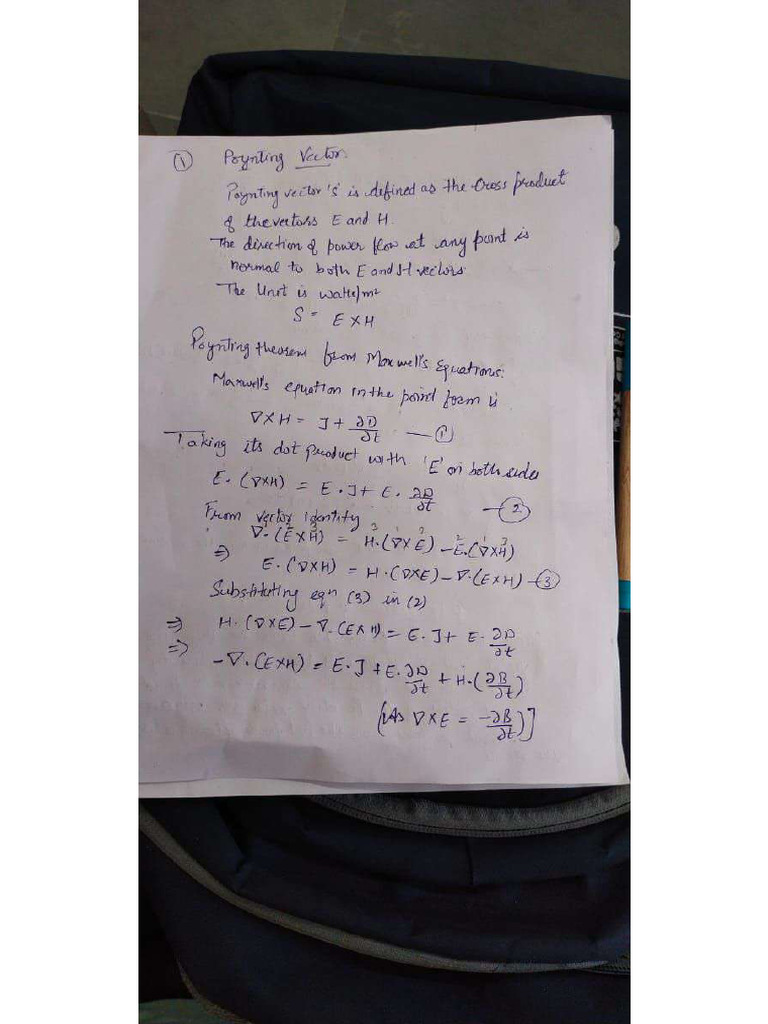 ① Poynting Vector
Poynting vector 's' is defined as the Cross product
of the vectors E and H.
The direction of power flow at any point is
normal to both E and H vectors.
The Unit is watts/m²
S = E X H
Poynting theorem from Maxwell's Equations:
Maxwell's equation in the point form is
∇XH = J + ∂D/∂t — ①
Taking its dot product with 'E' on both sides
E. (∇XH) = E. J + E. ∂D/∂t — ②
From vector identity
∇¹. (E² X H³) = H³. (∇¹ X E²) − E². (∇¹ X H³)
⇒ E. (∇XH) = H. (∇XE) − ∇. (EXH) — ③
Substituting eqn (3) in (2)
⇒ H. (∇XE) − ∇. (EXH) = E. J + E. ∂D/∂t
⇒ −∇. (EXH) = E. J + E. ∂D/∂t + H. (∂B/∂t)
[As ∇XE = −∂B/∂t)]